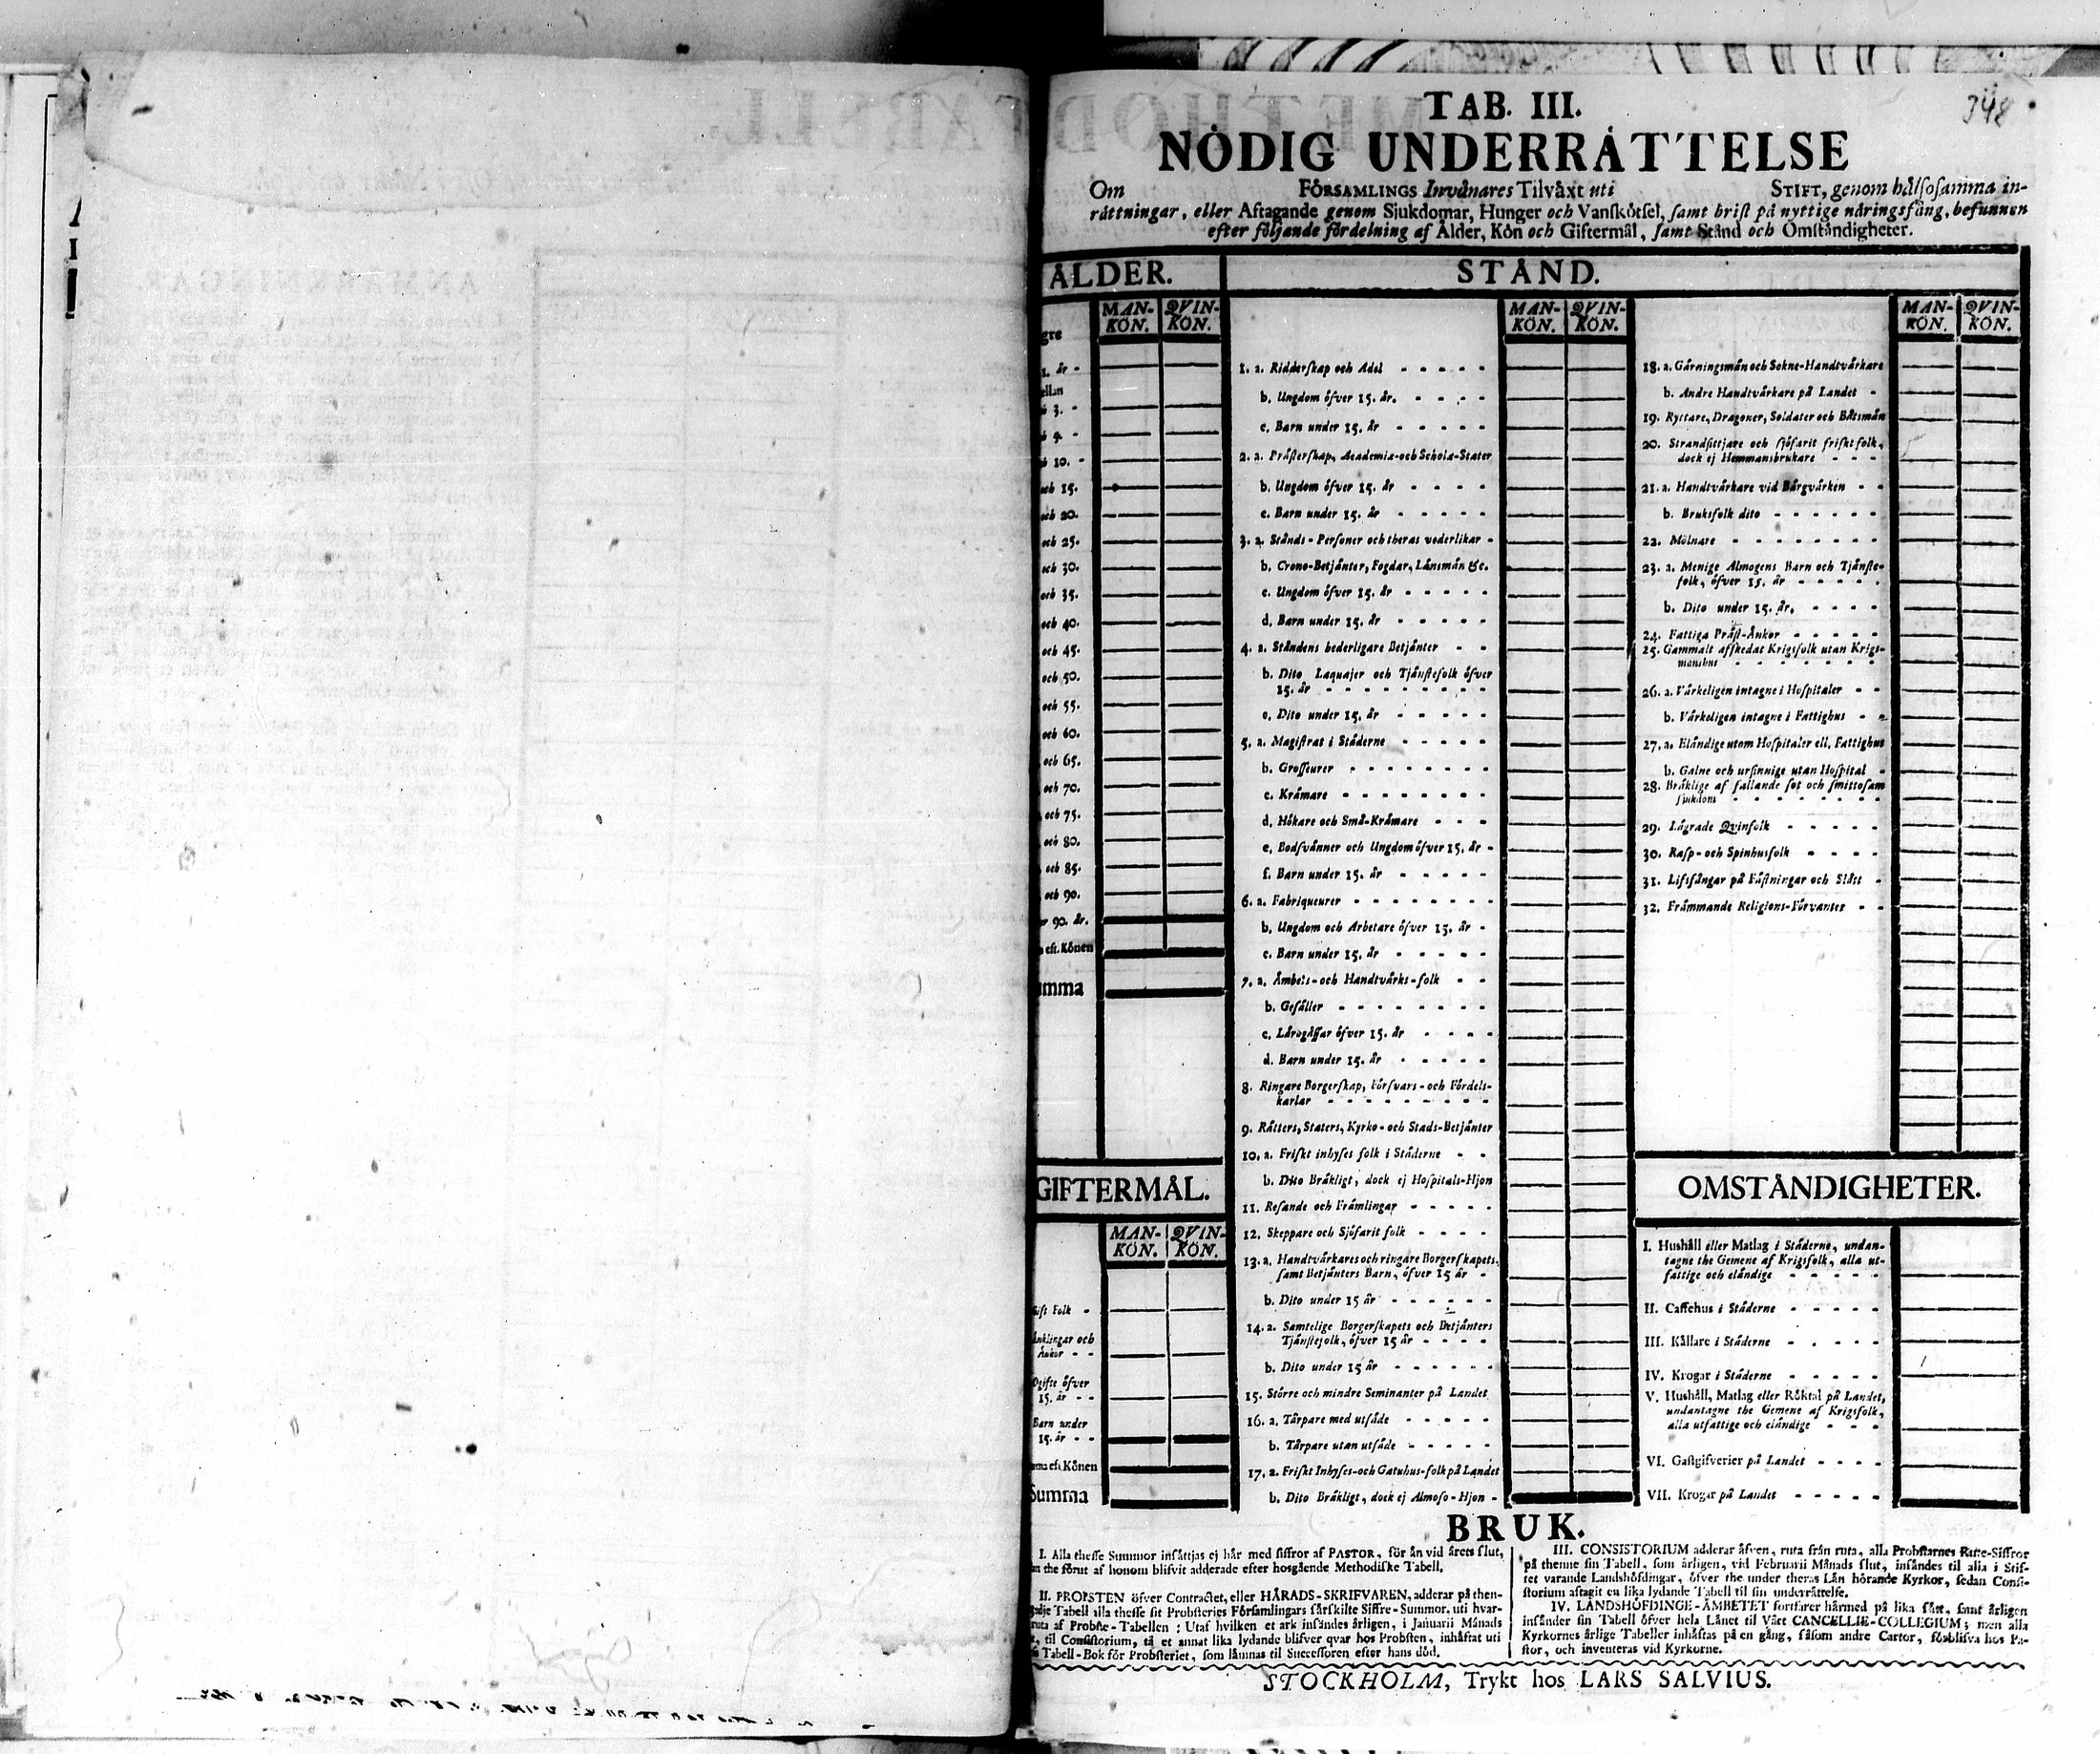 TAB. III.
348
NÖDIG UNDERRÅTTELSE
Om FÖRSAMLINGS Invånares Tilväxt uti STIFT, genom hålsosamma in-
råttningar, eller Aftagande genom Sjukdomar, Hunger och Vanskötsel, samt brist på nyttige näringsfång, befunnen
efter följande fördelning af Ålder, Kön och Giftermål, samt Stånd och Omständigheter.
ÅLDER.
MAN- QVIN-
KÖN. KÖN.
gre
1. år -
ellan
3. -
10. -
och 15.
och 20.
och 25.
och 30.
och 35.
och 40.
och 45.
och 50.
och 55.
och 60.
och 65.
och 70.
och 75.
och 80.
och 85.
och 90.
90. år.
eft. Könen
umma
GIFTERMÅL.
MAN- QVIN-
KÖN. KÖN.
Gift Folk -
Änklingar och
Änkor - -
Ogifte öfver
15. år - -
Barn under
15. år - -
eft Könen
Summa
STÅND.
MAN- QVIN-
KÖN. KÖN.
1. a. Ridderskap och Adel - - - - -
b. Ungdom öfver 15. år. - - - -
c. Barn under 15. år - - - - -
2. a. Prästerskap, Academiæ-och Scholæ-Stater
b. Ungdom öfver 15. år - - - -
c. Barn under 15. år - - - - -
3. a. Stånds-Personer och theras vederlikar -
b. Crono-Betjänter, Fogdar, Länsmän &c.
c. Ungdom öfver 15. år - - - - -
d. Barn under 15. år - - - - -
4. a. Ståndens hederligare Betjänter - -
b. Dito Laquajer och Tjänstefolk öfver
15. år - - - - - - - - -
c. Dito under 15. år - - - - -
5. a. Magistrat i Städerne - - - - -
b. Grosseurer - - - - - - - -
c. Krämare - - - - - - - -
d. Hökare och Små-Krämare - - -
e. Bodsvänner och Ungdom öfver 15. år -
f. Barn under 15. år - - - - -
6. a. Fabriqueurer - - - - - - - -
b. Ungdom och Arbetare öfver 15. år -
c. Barn under 15. år - - - - -
7. a. Ämbets-och Handtvärks-folk - -
b. Gesäller - - - - - - - -
c. Lärogåssar öfver 15. år - - - -
d. Barn under 15. år - - - - -
8. Ringare Borgerskap, Försvars-och Fördels-
karlar - - - - - - - - -
9. Rätters, Staters, Kyrko-och Stads-Betjänter
10. a. Friskt inhyses folk i Städerne - -
b. Dito Bräkligt, dock ej Hospitals-Hjon
11. Resande och Främlingar - - - - -
12. Skeppare och Sjöfarit folk - - - -
13. a. Handtvärkares och ringare Borgerskapets,
samt Betjänters Barn, öfver 15 år -
b. Dito under 15 år - - - - - -
14. a. Samtelige Borgerskapets och Betjänters
Tjänstefolk, öfver 15 år - - - -
b. Dito under 15 år - - - - - -
15. Större och mindre Seminanter på Landet
16. a. Tärpare med utsäde - - - - -
b. Tärpare utan utsäde - - - - -
17. a. Friskt Inhyses-och Gatuhus-folk på Landet
b. Dito Bräkligt, dock ej Almoso-Hjon -
MAN- QVIN-
KÖN. KÖN.
18. a. Gärningsmän och Sokne-Handtvärkare
b. Andre Handtvärkare på Landet -
19. Ryttare, Dragoner, Soldater och Båtsmän
20. Strandsittjare och sjöfarit friskt folk,
dock ej Hemmansbrukare - - -
21. a. Handtvärkare vid Bärgvärken - -
b. Bruksfolk dito - - - - - -
22. Mölnare - - - - - - - -
23. a. Menige Almogens Barn och Tjänste-
folk, öfver 15. år - - - - -
b. Dito under 15. år. - - - -
24. Fattiga Präst-Änkor - - - - -
25. Gammalt afskedat Krigsfolk utan Krigs-
manshus - - - - - - -
26. a. Värkeligen intagne i Hospitaler - -
b. Värkeligen intagne i Fattighus - -
27. a. Eländige utom Hospitaler ell. Fattighus
b. Galne och ursinnige utan Hospital -
28. Bräklige af fallande sot och smittosam
sjukdom - - - - - - - -
29. Lägrade Qvinfolk - - - - -
30. Rasp-och Spinhusfolk - - - -
31. Lifsfångar på Fästningar och Slått -
32. Främmande Religions-Förvanter - -
OMSTÄNDIGHETER.
I. Hushåll eller Matlag i Städerne, undan-
tagne the Gemene af Krigsfolk, alla ut-
fattige och eländige - - - - -
II. Caffehus i Städerne - - - - -
III. Källare i Städerne - - - - -
IV. Krogar i Städerne - - - - -
V. Hushåll, Matlag eller Röktal på Landet,
undantagne the Gemene af Krigsfolk,
alla utfattige och eländige - - -
VI. Gästgifverier på Landet - - - -
VII. Krogar på Landet - - - - -
BRUK.
I. Alla thesse Summor insättjas ej här med siffror af PASTOR, för än vid årets slut,
the förut af honom blifvit adderade efter hosgående Methodiske Tabell.
II. PROPSTEN öfver Contractet, eller HÄRADS-SKRIFVAREN, adderar på then-
Tabell alla thesse sit Probsteries Församlingars särskilte Siffre-Summor, uti hvar-
ruta af Probste-Tabellen; Utaf hvilken et ark insändes årligen, i Januarii Månads
til Consistorium, tå et annat lika lydande blifver qvar hos Probsten, inhäftat uti
Tabell-Bok för Probsteriet, som lämnas til Successoren efter hans död.
III. CONSISTORIUM adderar äfven, ruta från ruta, alla Probstarnes Rute-Siffror
på thenne sin Tabell, som årligen, vid Februarii Månads slut, insändes til alla i Stif-
tet varande Landshöfdingar, öfver the under theras Län hörande Kyrkor, sedan Consi-
storium aftagit en lika lydande Tabell til sin underrättelse.
IV. LANDSHÖFDINGE-ÄMBETET fortfarer härmed på lika sätt, samt årligen
insänder sin Tabell öfver hela Länet til Vårt CANCELLIE-COLLEGIUM; men alla
Kyrkornes årlige Tabeller inhäftas på en gång, såsom andre Cartor, förblifva hos Pa-
stor, och inventeras vid Kyrkorne.
STOCKHOLM, Trykt hos LARS SALVIUS.